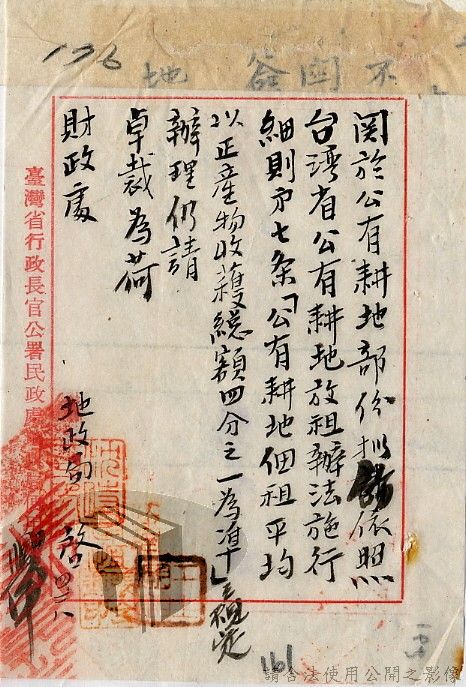 176
地 區 不
関於公有耕地部份擬依照
台湾省公有耕地放租辦法施行
細則第七条「公有耕地佃租平均
以正產物收獲總額四分之一為準」之規定
辦理仍請
卓裁為荷
財政處
地政局 啓
臺灣省行政長官公署民政處
161
請合法使用公開之影像